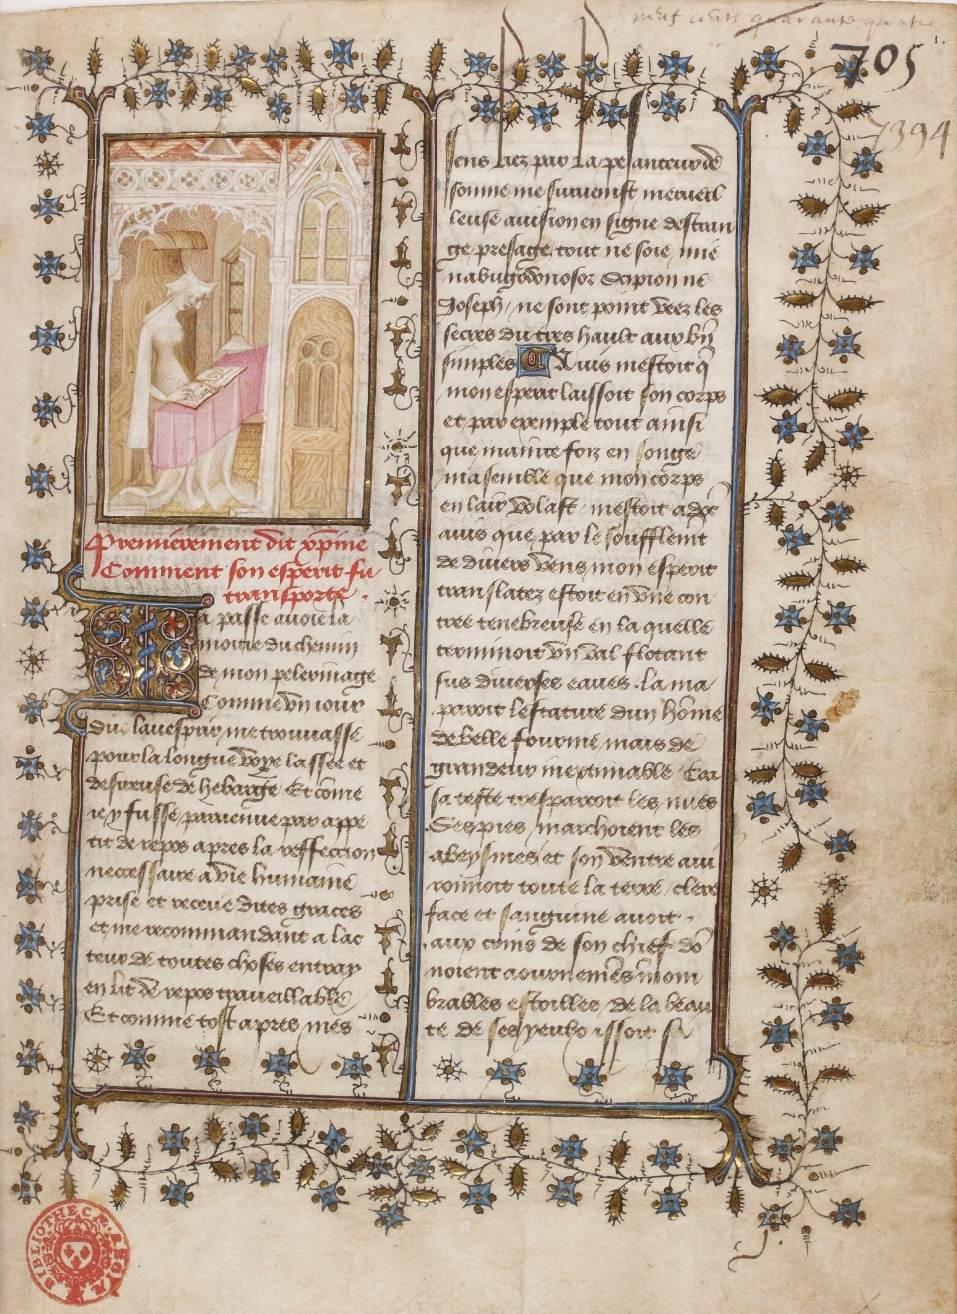 neuf cents quarante quatre
705
7394
Premierement dit xpine
Comment son esperit fu
transporte.
Ia passe auoie la
moitie du chemin
de mon pelerinage
Comme vn iour
du lauespray me trouuasse
pour la longue voye lassee et
desireuse de hebarge Et come
ie y fusse paruenue par appe
tit de repos apres la reffection
necessaire a vie humaine
prise et receue dites graces
et me recommandant a lac
teur de toutes choses entray
en lit de repos traueillable
Et comme tost apres mes
sens liez par la pesanteur de
somme me suruenist merueil
leuse auision en signe destran
ge presage tout ne soie mie
nabugodonosor Scipion ne
Joseph / ne sont point veez les
secres du tres hault aux bn
simples Auis mestoit q
mon esperit laissoit son corps
et par exemple tout ainsi
que mainte foiz en songe
ma semble que mon corps
en lair volast mestoit adoc
auis que par le soufflemt
de diuers vens mon esperit
translatez estoit en vne con
tree tenebreuse en la quelle
terminoit vn val flotant
sus diuerses eaues . la ma
paroit lestature dun home
de belle fourme mais de
grandeur inextimable Car
sa teste trespassoit les nues
Ses pies marchoient les
abeysmes et son ventre aui
ronnoit toute la terre / clere
face et sanguine auoit .
aux crins de son chief do
noient aournemes innom
brables estoilles / de la beau
te de ses yeulx issoit si
BIBLIOTHECÆ REGIÆ